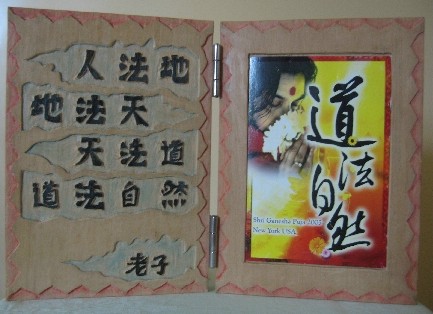 人法地
地法天
天法道
道法自然
老子
道法自然
Shri Ganesha Puja 2002
New York USA